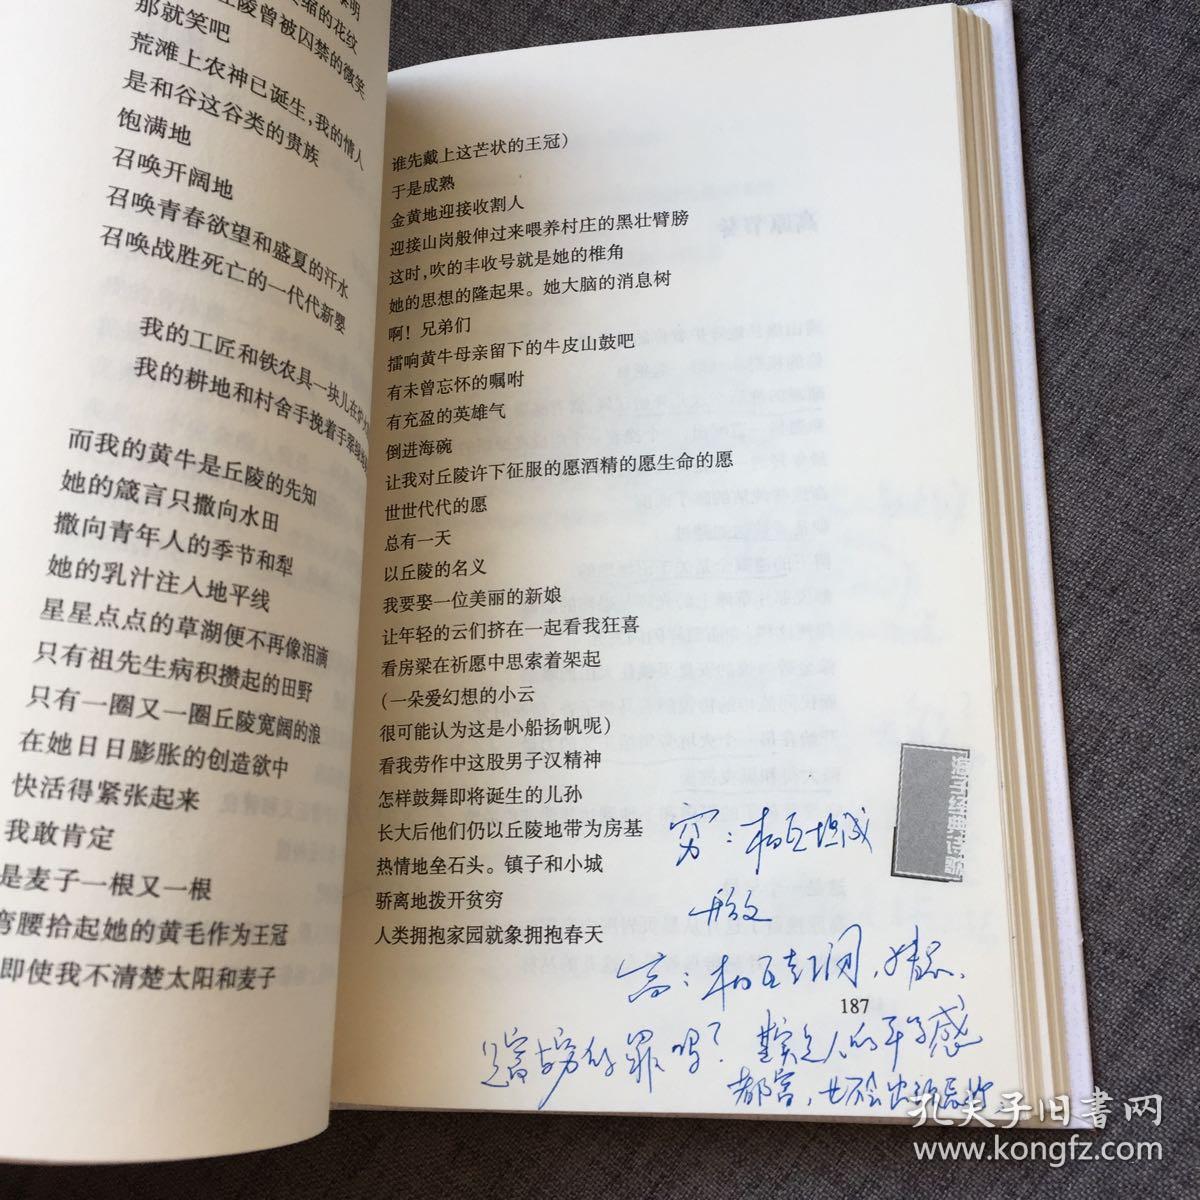 缩的花纹
丘陵曾被囚禁的微笑
那就笑吧
荒滩上农神已诞生，我的情人
是和谷这谷类的贵族
饱满地
召唤开阔地
召唤青春欲望和盛夏的汗水
召唤战胜死亡的一代代新婴
我的工匠和铁农具一块儿在炉火
我的耕地和村舍手挽着手
而我的黄牛是丘陵的先知
她的箴言只撒向水田
撒向青年人的季节和犁
她的乳汁注入地平线
星星点点的草湖便不再像泪滴
只有祖先生病积攒起的田野
只有一圈又一圈丘陵宽阔的浪
在她日日膨胀的创造欲中
快活得紧张起来
我敢肯定
是麦子一根又一根
弯腰拾起她的黄毛作为王冠
即使我不清楚太阳和麦子
谁先戴上这芒状的王冠）
于是成熟
金黄地迎接收割人
迎接山岗般伸过来喂养村庄的黑壮臂膀
这时，吹的丰收号就是她的椎角
她的思想的隆起果。她大脑的消息树
啊！兄弟们
擂响黄牛母亲留下的牛皮山鼓吧
有未曾忘怀的嘱咐
有充盈的英雄气
倒进海碗
让我对丘陵许下征服的愿酒精的愿生命的愿
世世代代的愿
总有一天
以丘陵的名义
我要娶一位美丽的新娘
让年轻的云们挤在一起看我狂喜
看房梁在祈愿中思索着架起
（一朵爱幻想的小云
很可能认为这是小船扬帆呢）
看我劳作中这股男子汉精神
怎样鼓舞即将诞生的儿孙
长大后他们仍以丘陵地带为房基
热情地垒石头。镇子和小城
骄离地拨开贫穷
人类拥抱家园就象拥抱春天
海子经典诗歌
穷：相互
富：相互
187
罪吗？
都富，也不会出
孔夫子旧书网
www.kongfz.com